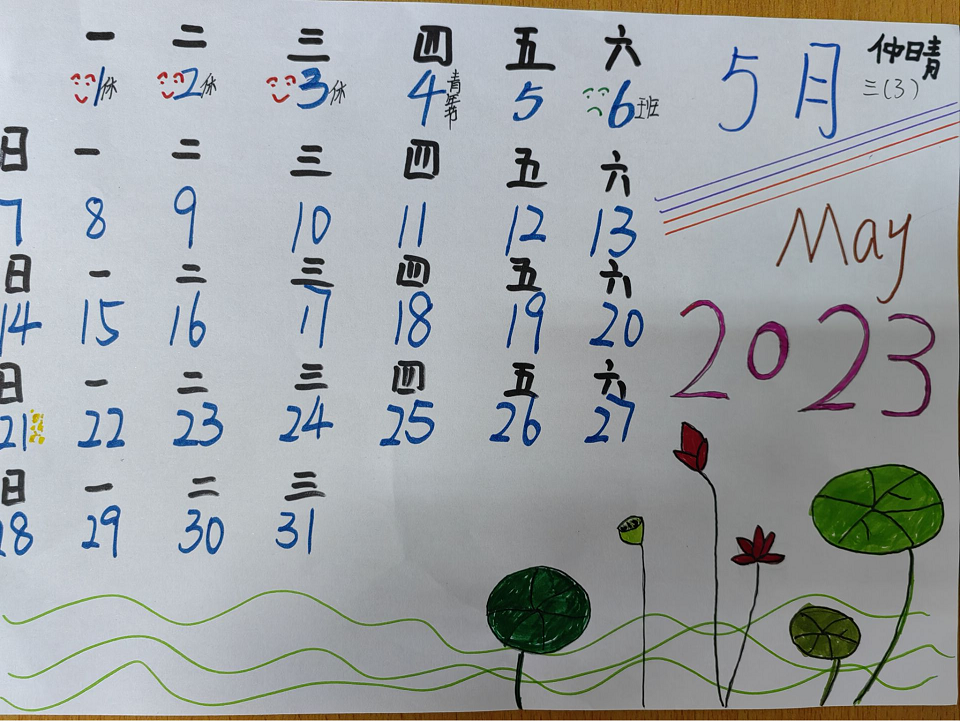 一 二 三 四 五 六
1休 2休 3休 4青年节 5 6班
5月
仲晴
三(3)
日 一 二 三 四 五 六
7 8 9 10 11 12 13
May
日 一 二 三 四 五 六
14 15 16 17 18 19 20
2023
日 一 二 三 四 五 六
21 22 23 24 25 26 27
日 一 二 三
28 29 30 31